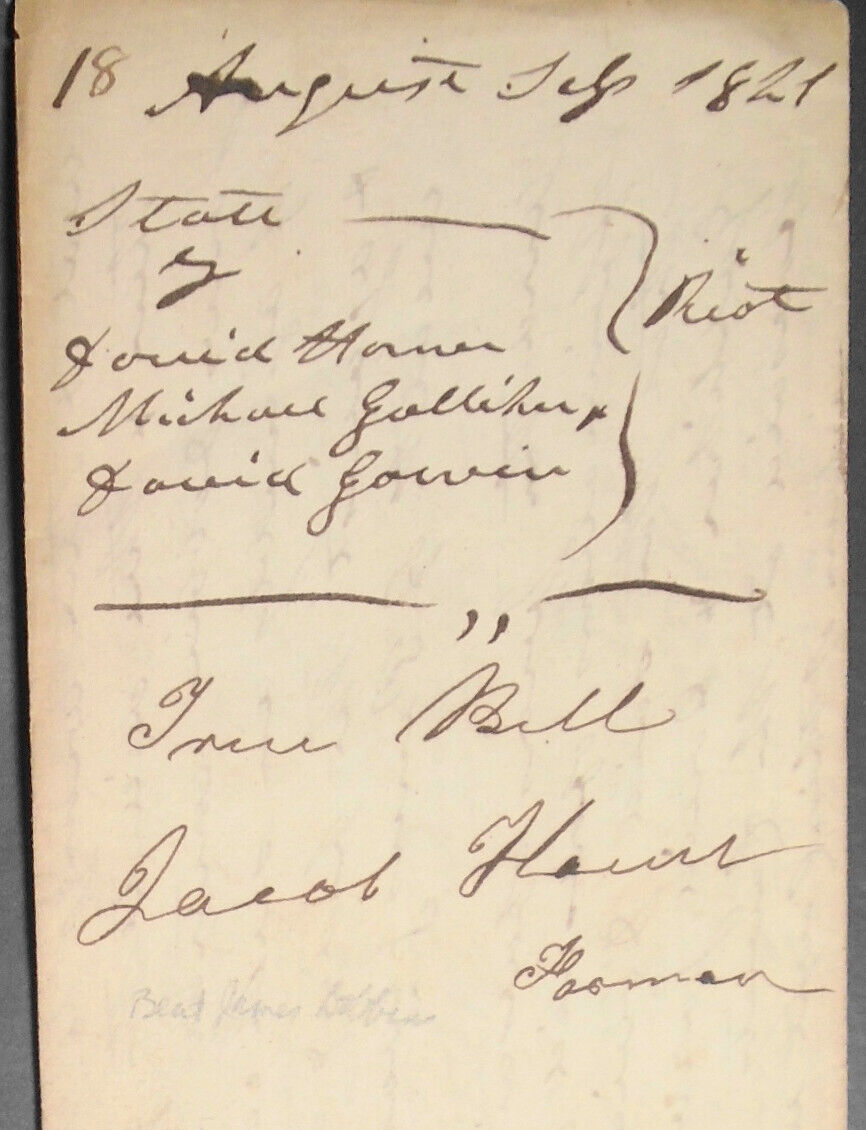 18 August Ses 1821
State
vs
David Horner
Michael Galliher
David Gorvin
Riot
True Bill
Jacob
Foorman
Beat James